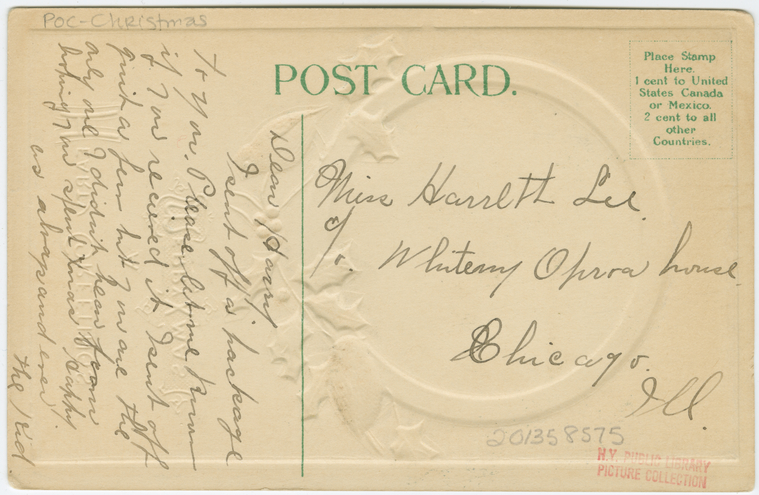 POC-Christmas
POST CARD.
Place Stamp
Here.
1 cent to United
States Canada
or Mexico.
2 cent to all
other
Countries.
Dear Harry
I sent off a package
to you. Please let me know
if you received it I sent off
quit a few but you are the
only one I didn't hear from
hoping you spent Xmas happy
as always and ever
the Kid
Miss Harrett Lee
c/o. Whiteny Oproa house
Chicago.
Ill.
201358575
N.Y. PUBLIC LIBRARY
PICTURE COLLECTION